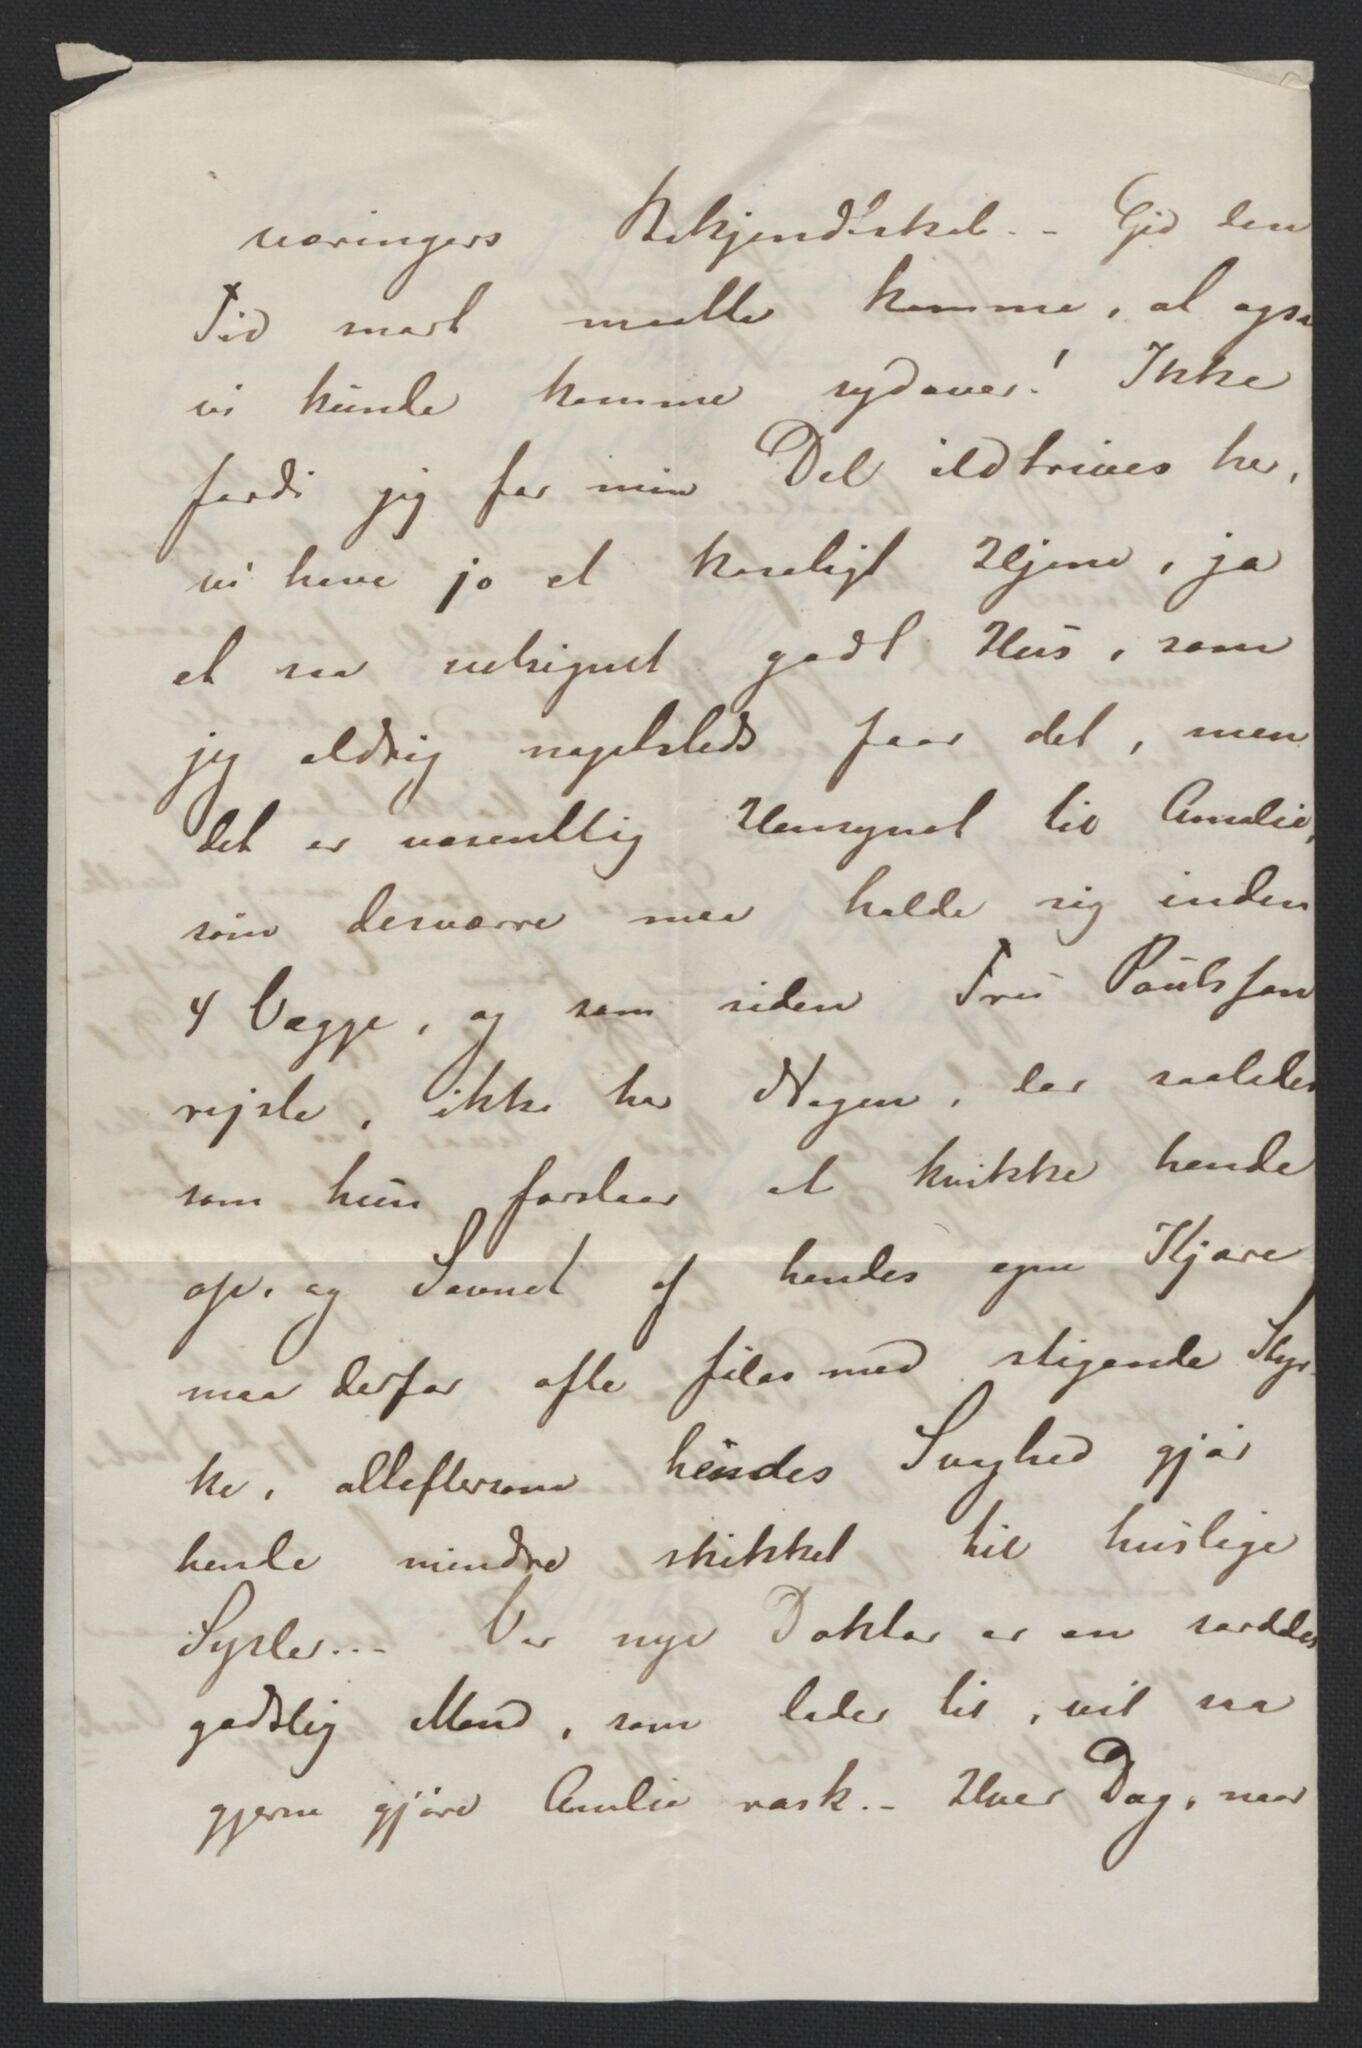 væringers Bekjendtskab.- Gid den
Tid snart maatte komme, at ogsaa
vi kunde komme sydover! Ikke
fordi jeg for min Del ildtrives her,
vi have jo et koseligt Hjem, ja
et saa velsignet godt Hus, som
jeg aldrig nogetsteds faar det, men
det er væsentlig Hensynet til Amalie,
som desværre maa holde sig inden
4 Vægge, og som siden Fru Paulsson
rejste, ikke har Nogen, der saaledes
som hun forstaar at kvikke hende
op, og Savnet af hendes egne Kjære
maa derfor ofte føles med stigende Styr-
ke, alteftersom hendes Svaghed gjør
hende mindre skikket til huslige
Sysler.-- Vor nye Doktor er en særdeles
godslig Mand, som lader til, vil saa
gjerne gjøre Amalie rask.- Hver Dag, naar